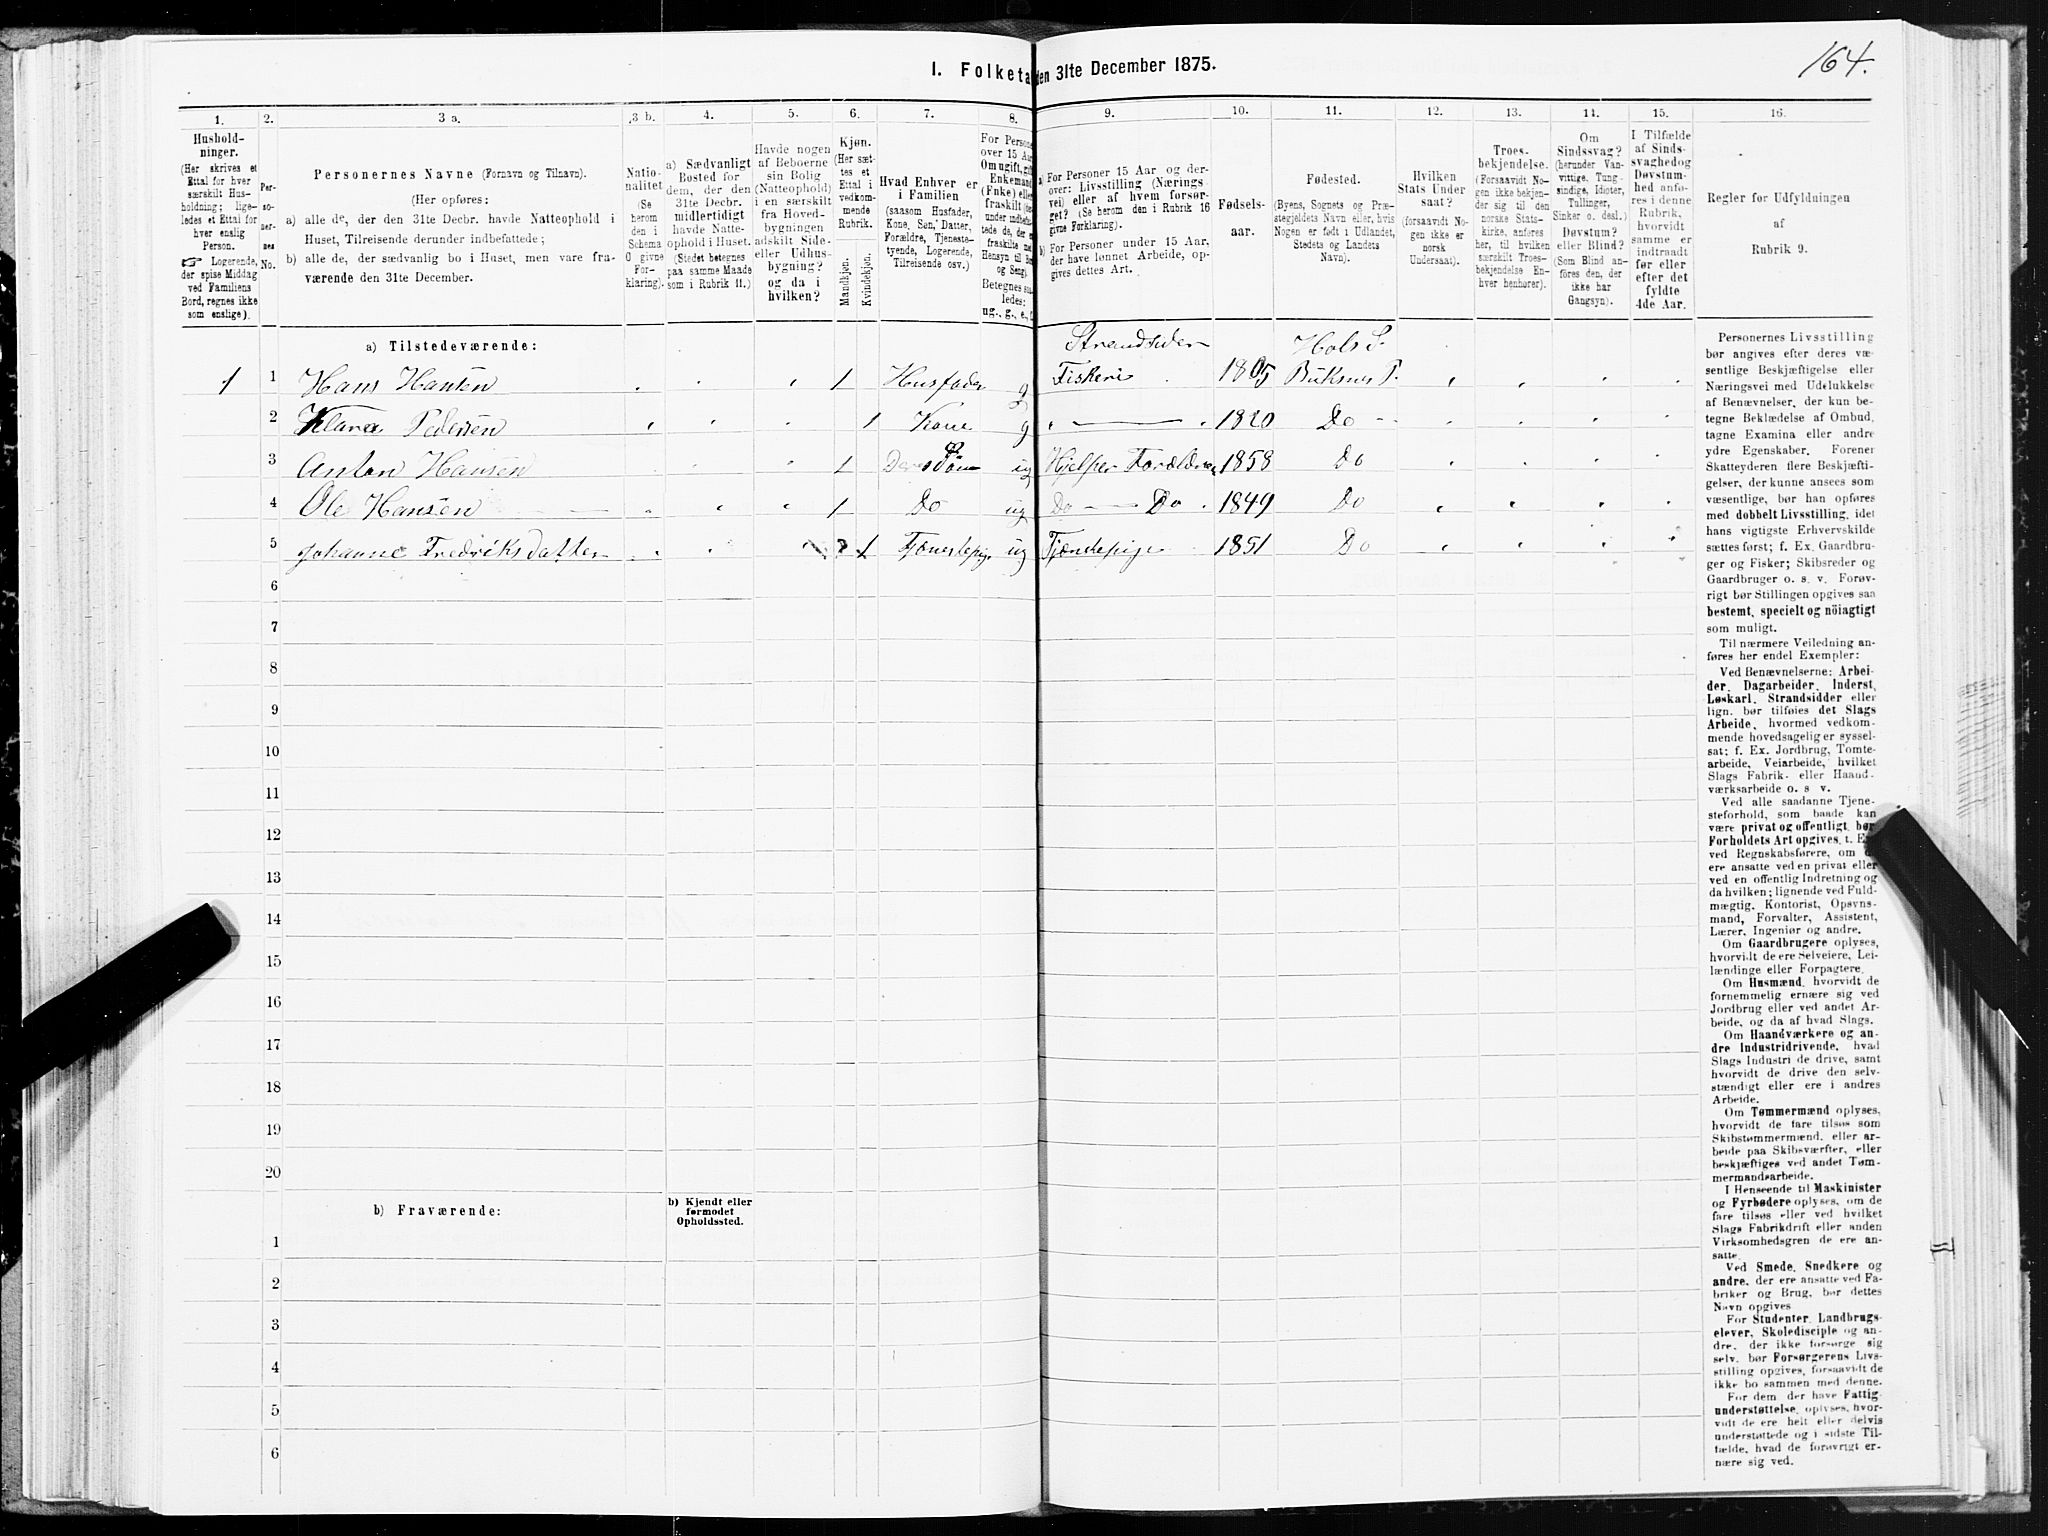 164.
I. Folketa den 31te December 1875.
1. 2. 3 a. 3 b. 4. 5. 6. 7. 8. 9. 10. 11. 12. 13. 14. 15. 16.
Hushold-
ninger.
(Her skrives et
Ettal for hver
særskilt Hus-
holdning; lige-
ledes et Ettal for
hver enslig
Person.
☞ Logerende,
der spise Middag
ved Familiens
Bord, regnes ikke
som enslige).
Per-
so-
ner-
nes
No.
Personernes Navne (Fornavn og Tilnavn).
(Her opføres:
a) alle de, der den 31te Decbr. havde Natteophold i
Huset, Tilreisende derunder indbefattede;
b) alle de, der sædvanlig bo i Huset, men vare fra-
værende den 31te December.
Natio-
nalitet
(Se
herom
den i
Schema
O givne
For-
klaring).
a) Sædvanligt
Bosted for
dem, der den
31te Decbr.
midlertidigt
havde Natte-
ophold i Huset.
(Stedet betegnes
paa samme Maade
som i Rubrik 11.)
Havde nogen
af Beboerne
sin Bolig
(Natteophold)
i en særskilt
fra Hoved-
bygningen
adskilt Side-
eller Udhus-
bygning?
og da i
hvilken?
Kjøn.
(Her sæt-
tes et
Ettal i
vedkom-
mende
Rubrik.
Mandkjøn.
Kvindekjøn.
Hvad Enhver er
i Familien
(saasom Husfader,
Kone, Søn, Datter,
Forældre, Tjeneste-
tyende, Logerende,
Tilreisende osv.)
For Persone
over 15 Aa
Om ugift, gift
Enkemand
(Fnke) elle
fraskilt
under indbefat-
tede de, der e
fraskilte m
Hensyn til Bo
og Seng).
Betegnes saa-
ledes:
ug., g., e.,
a) For Personer 15 Aar og der-
over: Livsstilling (Nærings-
vei) eller af hvem forsør-
get? (Se herom den i Rubrik 16
givne Forklaring).
b) For Personer under 15 Aar,
der have lønnet Arbeide, op-
gives dettes Art.
Fødsels-
aar.
Fødested.
(Byens, Sognets og Præ-
stegjeldets Navn eller, hvis
Nogen er født i Udlandet,
Stedets og Landets
Navn).
Hvilken
Stats Under
saat?
(forsaavidt No-
gen ikke er
norsk
Undersaat).
Troes-
bekjendelse.
(Forsaavidt No-
gen ikke bekjen-
der sig til den
norske Stats-
kirke, anføres
her, til hvilken
særskilt Troes-
bekjendelse En-
hver henhører).
Om
Sindssvag?
(herunder Van-
vittige, Tung-
sindige, Idioter,
Tullinger,
Sinker o. desl.)
Døvstum?
eller Blind?
(Som Blind an-
føres den, der
ikke har
Gangsyn).
I Tilfælde
af Sinds-
svaghed og
Døvstum-
hed anfø-
res i denne
Rubrik,
hvorvidt
samme er
indtraadt
før eller
efter det
fyldte
4de Aar.
Regler for Udfyldningen
af
Rubrik 9.
a) Tilstedeværende:
Strandsider Hols S.
1 1 Hans Hansen 1 Husfader g Fiskeri 1805 Buksnes P.
2 Klara Pedersen 1 Kone g 1820 Do
3 Anton Hansen 1 Deres Søn ug Hjelper Forældrene 1858 Do
4 Ole Hansen 1 Do ug Do Do 1849 Do
5 Johanne Fredriksdatter 1 Tjenestepige ug Tjenestepige 1851 Do
6
7
8
9
10
11
12
13
14
15
16
17
18
19
20
b) Fraværende:
b) Kjendt eller
formodet
Opholdssted.
1
2
3
4
5
6
Personernes Livsstilling
bør angives efter deres væ-
sentlige Beskjæftigelse eller
Næringsvei med Udelukkelse
af Benævnelser, der kun be-
tegne Beklædelse af Ombud,
tagne Examina eller andre
ydre Egenskaber. Forener
Skatteyderen flere Beskjæfti-
gelser, der kunne ansees som
væsentlige, bør han opføres
med dobbelt Livsstilling, idet
hans vigtigste Erhvervskilde
sættes først; f. Ex. Gaardbru-
ger og Fisker; Skibsreder og
Gaardbruger o. s. v. Forøv-
rigt bør Stillingen opgives saa
bestemt, specielt og nöiagtigt
som muligt.
Til nærmere Veiledning an-
føres her endel Exempler:
Ved Benævnelserne: Arbei-
der, Dagarbeider, Inderst,
Løskarl, Strandsidder eller
lign. bør tilføies det Slags
Arbeide, hvormed vedkom-
mende hovedsagelig er syssel-
sat; f. Ex. Jordbrug, Tomte-
arbeide, Veiarbeide, hvilket
Slags Fabrik- eller Haand-
værksarbeide o. s v.
Ved alle saadanne Tjene-
steforhold, som baade kan
være privat og offentligt, bør
Forholdets Art opgives, f. E
ved Regnskabsførere, om
ere ansatte ved en privat eller
ved en offentlig Indretning og
da hvilken; lignende ved Fuld-
mægtig, Kontorist, Opsyns-
mand, Forvalter, Assistent,
Lærer, Ingeniør og andre.
Om Gaardbrugere oplyses,
hvorvidt de ere Selveiere, Lei-
lændinge eller Forpagtere.
Om Husmænd, hvorvidt de
fornemmelig ernære sig ved
Jordbrug eller ved andet Ar-
beide, og da af hvad Slags.
Om Haandværkere og an-
dre Industridrivende, hvad
Slags Industri de drive, samt
hvorvidt de drive den selv-
stændigt eller ere i andres
Arbeide.
Om Tømmermænd oplyses,
hvorvidt de fare tilsøs som
Skibstømmermænd, eller ar-
beide paa Skibsværfter, eller
beskjæftiges ved andet Tøm-
mermandsarbeide.
I Henseende til Maskinister
og Fyrbødere oplyses, om de
fare tilsøs eller ved hvilket
Slags Fabrikdrift eller anden
Virksomhedsgren de ere an-
satte.
Ved Smede, Snedkere og
andre, der ere ansatte ved Fa-
briker og Brug, bør dettes
Navn opgives
For Studenter, Landbrugs-
elever, Skoledisciple og an-
dre, der ikke forsørge sig
selv, bør Forsørgerens Livs-
stilling opgives, forsaavidt de
ikke bo sammen med denne.
For dem, der have Fattig-
understøttelse, oplyses, hvor-
vidt de ere helt eller delvis
understøttede og i sidste Til-
fælde, hvad de forøvrigt er-
nære sig ved.